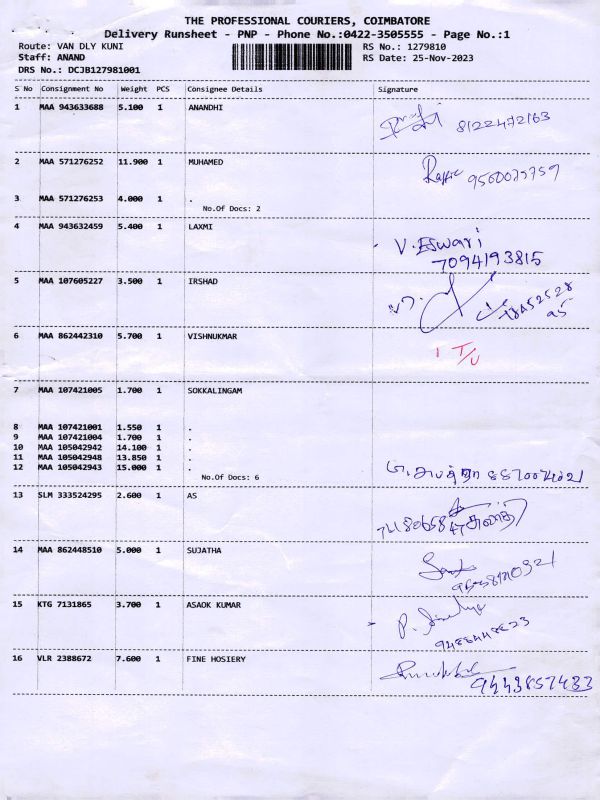 THE PROFESSIONAL COURIERS, COIMBATORE
Delivery Runsheet - PNP - Phone No.:0422-3505555 - Page No.:1
Route: VAN DLY KUNI RS No.: 1279810
Staff: ANAND RS Date: 25-Nov-2023
DRS No.: DCJB127981001
S No Consignment No Weight PCS Consignee Details Signature
1 MAA 943633688 5.100 1 ANANDHI
8122472163
2 MAA 571276252 11.900 1 MUHAMED
3 MAA 571276253 4.000 1 .
No.Of Docs: 2
4 MAA 943632459 5.400 1 LAXMI
V. Eswari
7094193815
5 MAA 107605227 3.500 1 IRSHAD
6 MAA 862442310 5.700 1 VISHNUKMAR
7 MAA 107421005 1.700 1 SOKKALINGAM
8 MAA 107421001 1.550 1 .
9 MAA 107421004 1.700 1 .
10 MAA 105042942 14.100 1 .
11 MAA 105042948 13.850 1 .
12 MAA 105042943 15.000 1 .
No.Of Docs: 6
13 SLM 333524295 2.600 1 AS
14 MAA 862448510 5.000 1 SUJATHA
15 KTG 7131865 3.700 1 ASAOK KUMAR
16 VLR 2388672 7.600 1 FINE HOSIERY
9443857433